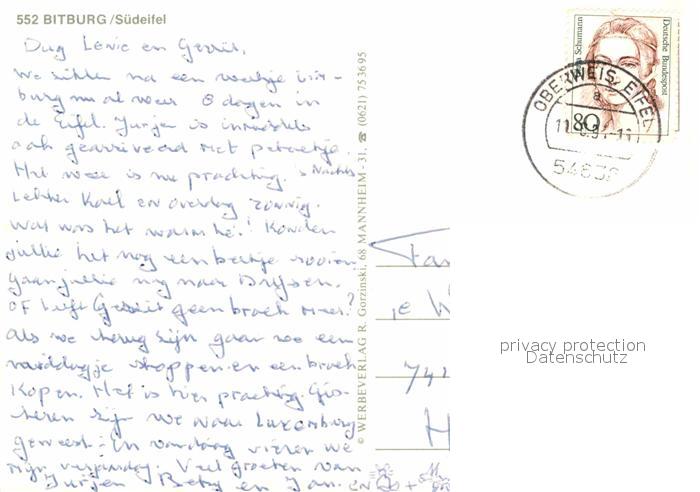 552 BITBURG / Südeifel
Dag Lenie en Gerrit,
We zitten na een weekje
burg nu al weer 8 dagen in
de Eifel. Jurjen is inmiddels
ook gearriveerd met
Het weer is nu prachtig. 's Nachts
lekker koel en overdag zonnig.
Wat was het warm hè! Konden
jullie het nog een beetje rooien.
gaan jullie nog naar
of heeft Gerrit geen broek meer?
Als we terug zijn gaan we een
shoppen en een broek
kopen. Het is hier prachtig. Gis-
teren zijn we naar Luxemburg
geweest. En vandaag vieren we
mijn verjaardag. Veel groeten van
Jurjen Betsy en Jan. en
© WERBEVERLAG R. Gorzinski, 68 MANNHEIM - 31, ☎ (0621) 753695
Deutsche Bundespost
Schumann
80
OBERWEIS, EIFEL
a
Fam
74
H
privacy protection
Datenschutz